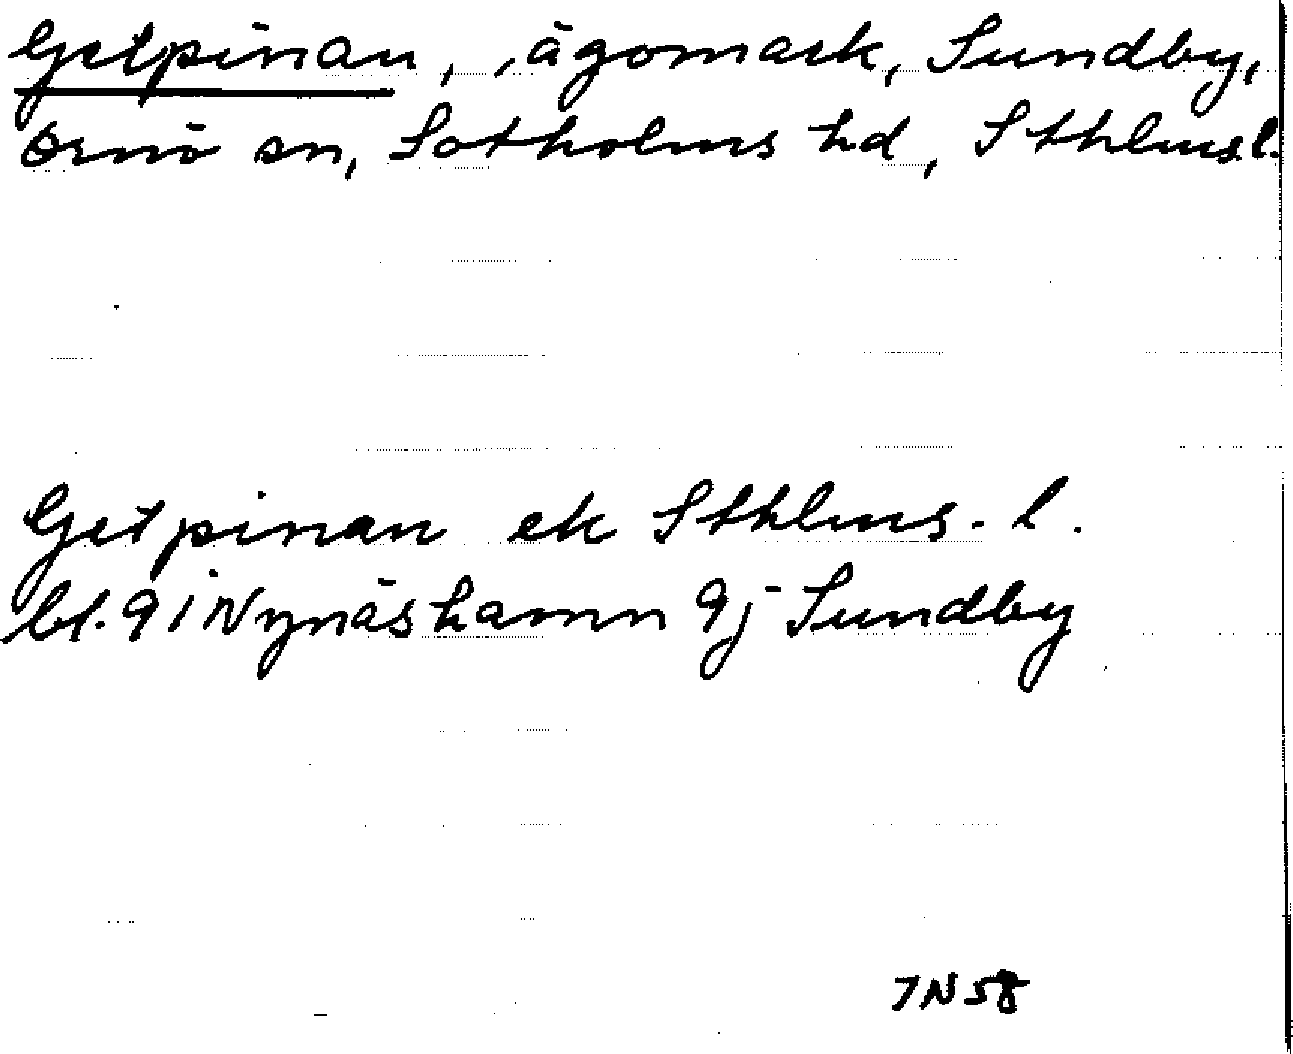 Getpinan, ,ägomark, Sundby,
Ornö sn, Sotholms hd, Sthlms l.
Getpinan ek Sthlms. l.
bl. 91 Nynäshamn 9j Sundby
7N58